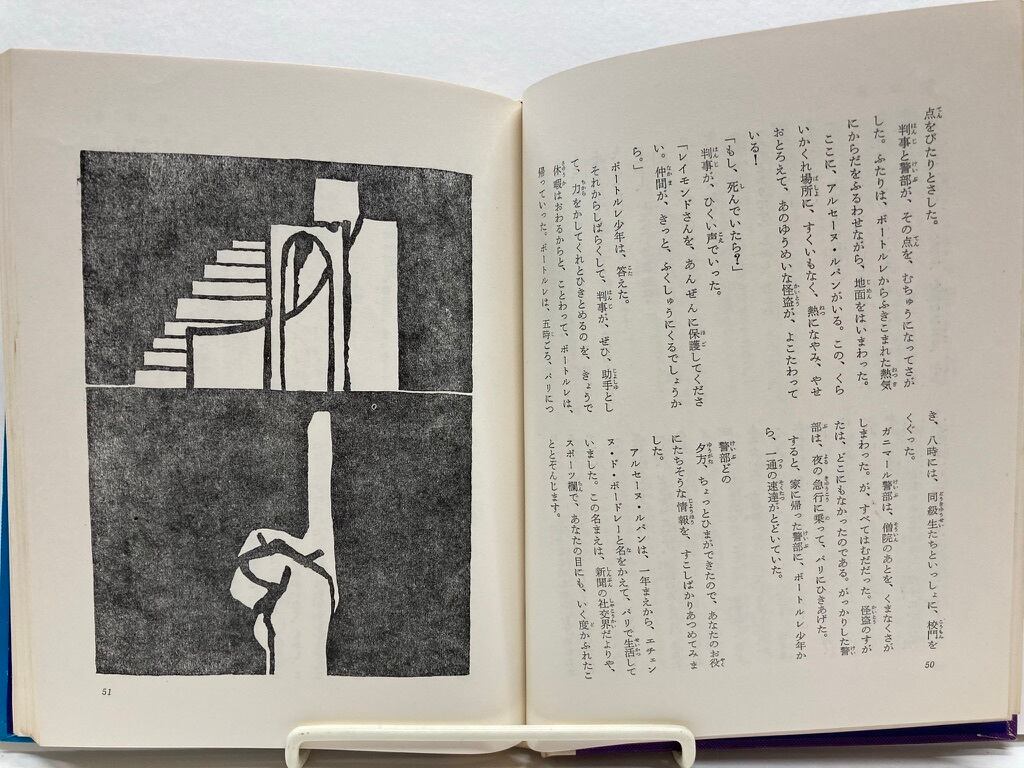 点をぴたりとさした。
判事と警部が、その点を、むちゅうになってさが
した。ふたりは、ボートルレからふきこまれた熱気
にからだをふるわせながら、地面をはいまわった。
ここに、アルセーヌ・ルパンがいる。この、くら
いかくれ場所に、すくいもなく、熱になやみ、やせ
おとろえて、あのゆうめいな怪盗が、よこたわって
いる！
「もし、死んでいたら？」
判事が、ひくい声でいった。
「レイモンドさんを、あんぜんに保護してくださ
い。仲間が、きっと、ふくしゅうにくるでしょうか
ら。」
ボートルレ少年は、答えた。
それからしばらくして、判事が、ぜひ、助手とし
て、力をかしてくれとひきとめるのを、きょうで
休暇はおわるからと、ことわって、ボートルレは、
帰っていった。ボートルレは、五時ごろ、パリにつ
き、八時には、同級生たちといっしょに、校門を
くぐった。
ガニマール警部は、僧院のあとを、くまなくさが
しまわった。が、すべてはむだだった。怪盗のすが
たは、どこにもなかったのである。がっかりした警
部は、夜の急行に乗って、パリにひきあげた。
すると、家に帰った警部に、ボートルレ少年か
ら、一通の速達がとどいていた。
警部どの
夕方、ちょっとひまができたので、あなたのお役
にたちそうな情報を、すこしばかりあつめてみま
した。
アルセーヌ・ルパンは、一年まえから、エチェン
ヌ・ド・ボードレーと名をかえて、パリで生活して
いました。この名まえは、新聞の社交界だよりや、
スポーツ欄で、あなたの目にも、いく度かふれたこ
ととぞんじます。
50
51